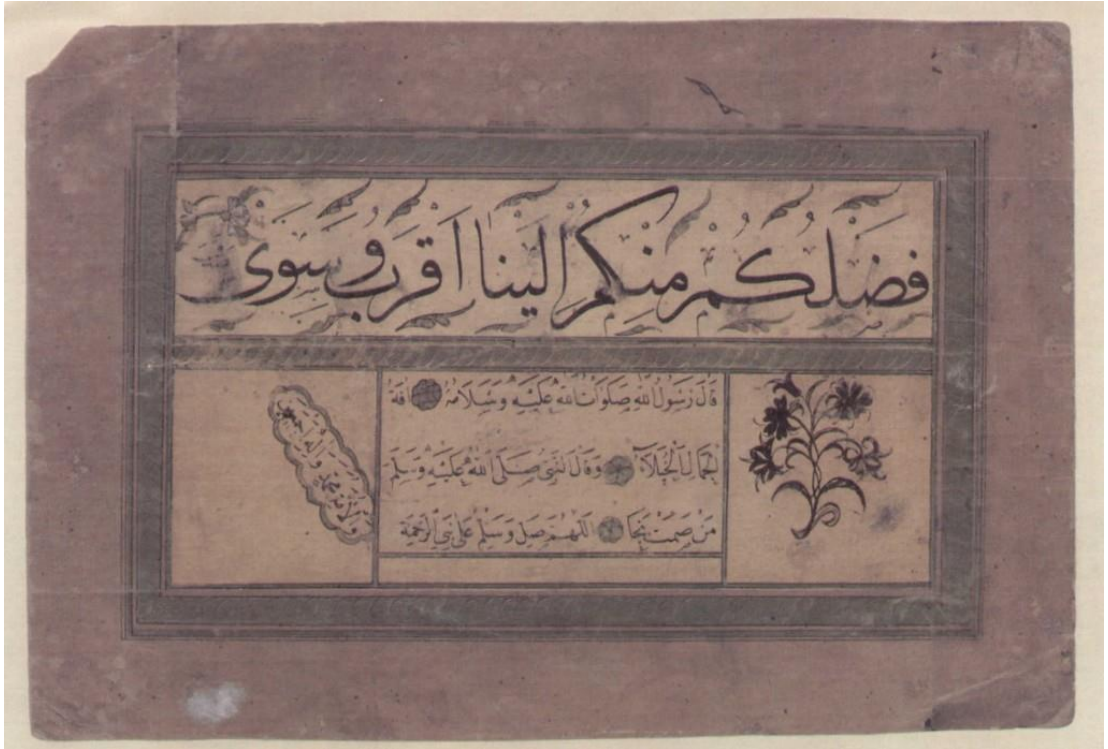 فَضْلُكُمْ مِنْكُمْ اِلَيْنَا اَقْرَبُ وَسِوَى
قَالَ رَسُولُ اللّٰهِ صَلَوَاتُ اللّٰهِ عَلَيْهِ وَسَلَامُهُ اٰفَةُ
الْجَمَالِ الْخُيَلَاۤءُ وَقَالَ النَّبِيُّ صَلَّى اللّٰهُ عَلَيْهِ وَسَلَّمَ
مَنْ صَمَتَ نَجَا اَللّٰهُمَّ صَلِّ وَسَلِّمْ عَلٰى نَبِيِّ الرَّحْمَةِ